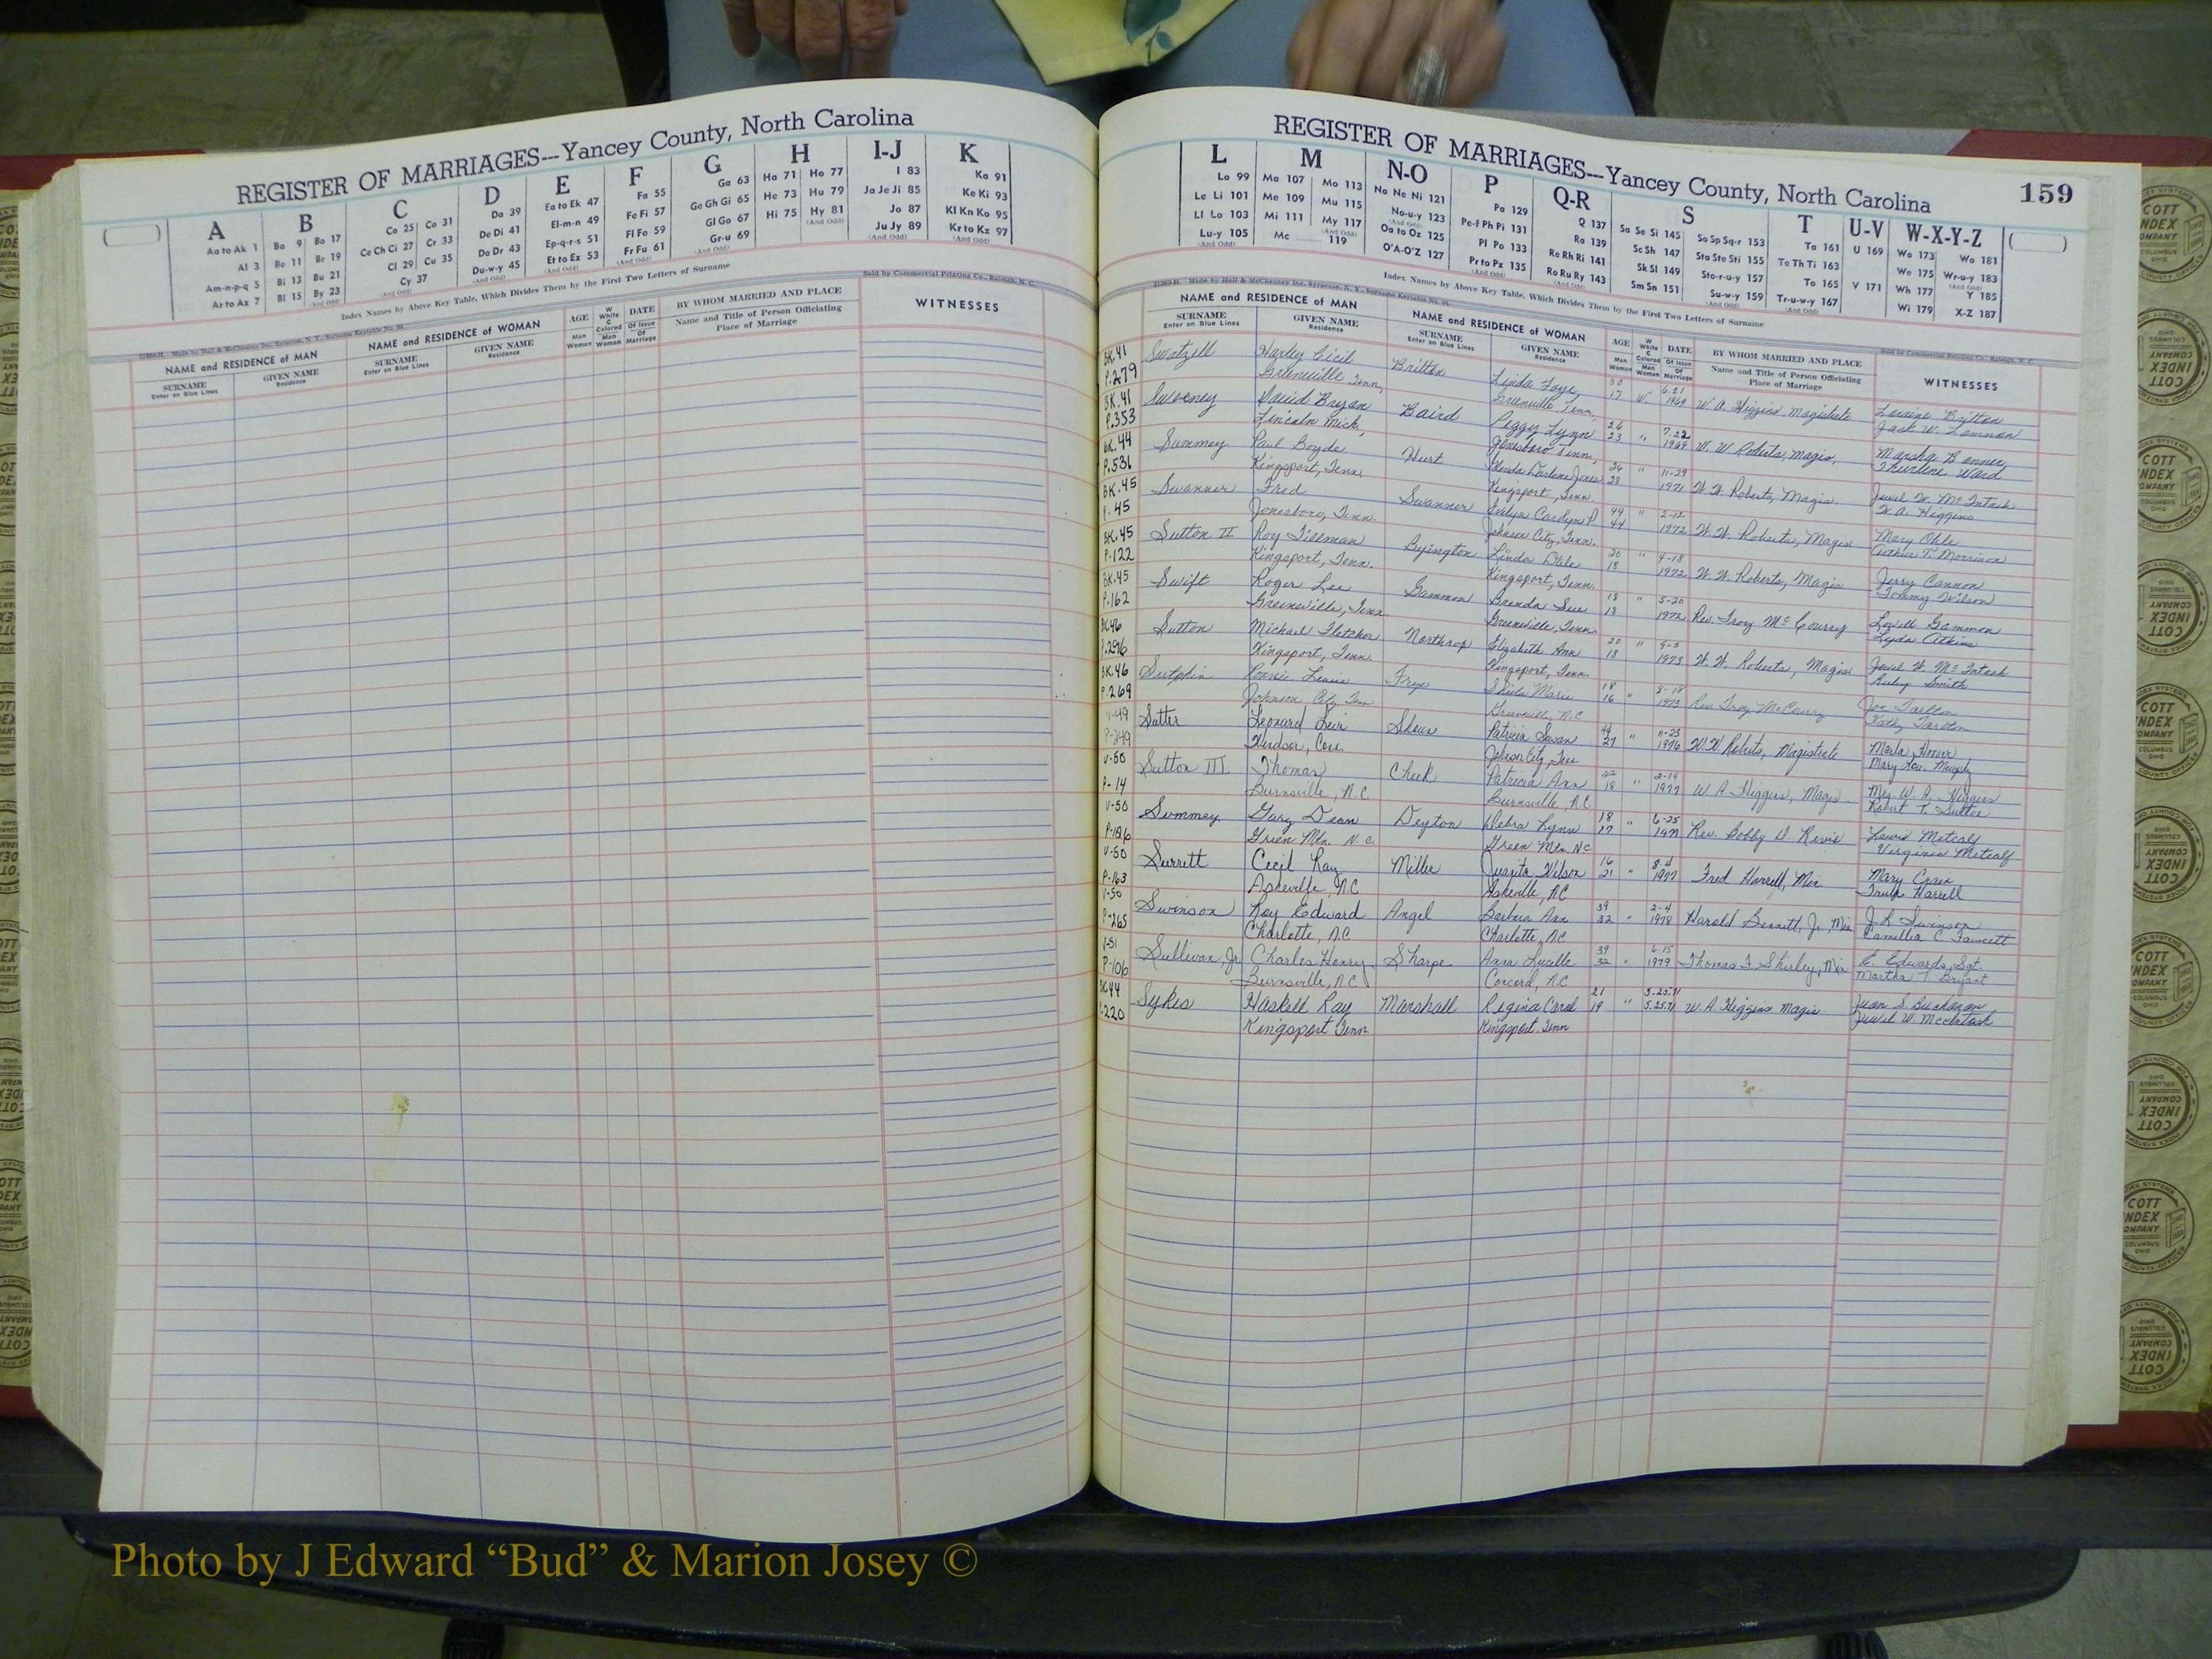 REGISTER OF MARRIAGES---Yancey County, North Carolina
A B C D E F G H I-J K
Aa to Ak 1
Al 3
Am-n-p-q 5
Ar to Az 7
Ba 9 Bo 17
Be 11 Br 19
Bi 13 Bu 21
Bl 15 By 23
Ca 25 Co 31
Ce Ch Ci 27 Cr 33
Cl 29 Cu 35
Cy 37
Da 39
De Di 41
Do Dr 43
Du-w-y 45
Ea to Ek 47
El-m-n 49
Ep-q-r-s 51
Et to Ez 53
Fa 55
Fe Fi 57
Fl Fo 59
Fr Fu 61
Ga 63
Ge Gh Gi 65
Gl Go 67
Gr-u 69
Ha 71 Ho 77
He 73 Hu 79
Hi 75 Hy 81
I 83
Ja Je Ji 85
Jo 87
Ju Jy 89
Ka 91
Ke Ki 93
Kl Kn Ko 95
Kr to Kz 97
Index Names by Above Key Table, Which Divides Them by the First Two Letters of Surname
Sold by Commercial Printing Co., Raleigh, N. C.
NAME and RESIDENCE of MAN
SURNAME
Enter on Blue Lines
GIVEN NAME
Residence
NAME and RESIDENCE of WOMAN
SURNAME
Enter on Blue Lines
GIVEN NAME
Residence
AGE
Man
Woman
W
White
C
Colored
Man
Woman
DATE
Of Issue
Of
Marriage
BY WHOM MARRIED AND PLACE
Name and Title of Person Officiating
Place of Marriage
WITNESSES
REGISTER OF MARRIAGES---Yancey County, North Carolina
159
L M N-O P Q-R S T U-V W-X-Y-Z
La 99
Le Li 101
Ll Lo 103
Lu-y 105
Ma 107 Mo 113
Me 109 Mu 115
Mi 111 My 117
Mc 119
Na Ne Ni 121
No-u-y 123
Oa to Oz 125
O'A-O'Z 127
Pa 129
Pe-f Ph Pi 131
Pl Po 133
Pr to Pz 135
Q 137
Ra 139
Re Rh Ri 141
Ro Ru Ry 143
Sa Se Si 145 So Sp Sq-r 153
Sc Sh 147 Sta Ste Sti 155
Sk Sl 149 Sto-r-u-y 157
Sm Sn 151 Su-w-y 159
Ta 161
Te Th Ti 163
To 165
Tr-u-w-y 167
U 169
V 171
Wa 173 Wo 181
We 175 Wr-u-y 183
Wh 177 Y 185
Wi 179 X-Z 187
Index Names by Above Key Table, Which Divides Them by the First Two Letters of Surname
21860-H Made by Hall & McChesney Inc., Syracuse, N. Y.
NAME and RESIDENCE of MAN
SURNAME
Enter on Blue Lines
GIVEN NAME
Residence
NAME and RESIDENCE of WOMAN
SURNAME
Enter on Blue Lines
GIVEN NAME
Residence
AGE
Man
Woman
W
White
C
Colored
Man
Woman
DATE
Of Issue
Of
Marriage
BY WHOM MARRIED AND PLACE
Name and Title of Person Officiating
Place of Marriage
WITNESSES
BK.41 Swatzell Harley Cecil Britton Linda Faye 6-21 W. A. Higgins, Magistrate
P.279 Greeneville Tenn, Greenville Tenn, 17 W. 1969 Jack W. Lemmon
BK.41 Sweeney David Bryan Baird Peggy Lynn 26 7-22 W. W. Roberts, Magis,
P.353 Lincoln Mich, Jonesboro Tenn, 23 " 1969
BK.44 Summey Paul Boyde Hurt 11-29 W. W. Roberts, Magis.
P.531 Kingsport, Tenn. Kingsport, Tenn. 28 " 1971
BK.45 Swanner Fred Swanner Evelyn Carolyn P. 44 " 2-12 W. W. Roberts, Magis
P. 45 Jonesboro, Tenn. Johnson City, Tenn. 44 1972
BK.45 Sutton II Roy Tillman Byington Linda Dale 20 " 4-18 W. W. Roberts, Magis
P.122 Kingsport, Tenn. Kingsport, Tenn. 18 1972
Jerry Cannon
Tommy Wilson
BK.45 Swift Roger Lee Gammon Brenda Sue 18 " 5-20 Rev. Troy McCourry
P.162 Greeneville, Tenn. Greeneville, Tenn. 18 1972
Lowell Gammon
Lyda Atkins
BK.46 Sutton Michael Fletcher Northrop Elizabeth Ann 20 " W. W. Roberts, Magis
P.296 Kingsport, Tenn. Kingsport, Tenn. 18 1973
Jewel W. McIntosh
Ruby Smith
BK.46 Sutphin Lewis Frye Sheila Marie 18 8-18 Rev. Troy McCourry
P.269 Johnson City, Tenn 16 " 1973
V-49 Sutter Leonard Shear Patricia Susan 11-23 W. W. Roberts, Magistrate
P-349 Windsor, Johnson City, Tenn 27 " 1976
V-50 Sutton III Thomas Cheek Patricia Ann 22 2-14 W. A. Higgins, Magis.
P- 14 Burnsville, N.C. Burnsville, N.C 18 " 1977
Mrs. W. A. Higgins
Robert T. Sutton
V-50 Summey Gary Dean Deyton Debra Lynn 18 6-25 Rev. Bobby D. Revis
Green Mtn. N.C. Green Mtn. NC 17 " 1977
Lewis Metcalf
Virginia Metcalf
V-50 Surrett Cecil Ray Miller Juanita Wilson 16 8-4 Fred Harrell, Min
P-163 Asheville, N.C Asheville, NC 21 " 1977
V-50 Swinson Roy Edward Angel Barbara Ann 39 2-4 Harold Bennett, Jr. Min
P-265 Charlotte, N.C Charlotte, N.C. 32 " 1978
J. R. Swinson
Camellia C. Fawcett
V-51 Sullivan, Jr. Charles Henry Sharpe Anna Lucille 39 6-15 Thomas F. Shirley, Min
P-106 Burnsville, N.C. Concord, N.C 32 " 1979
E. Edwards, Sgt.
Martha T. Bryant
BK.44 Sykes Haskell Ray Marshall Regina Carol 21 5.25.71 W. A. Higgins Magis
P.220 Kingsport Tenn Kingsport Tenn 19 " 5.25.71
Juan S. Buchanan
Jewel W. McIntosh
Photo by J Edward “Bud” & Marion Josey ©
COTT
INDEX
COMPANY
COLUMBUS
OHIO